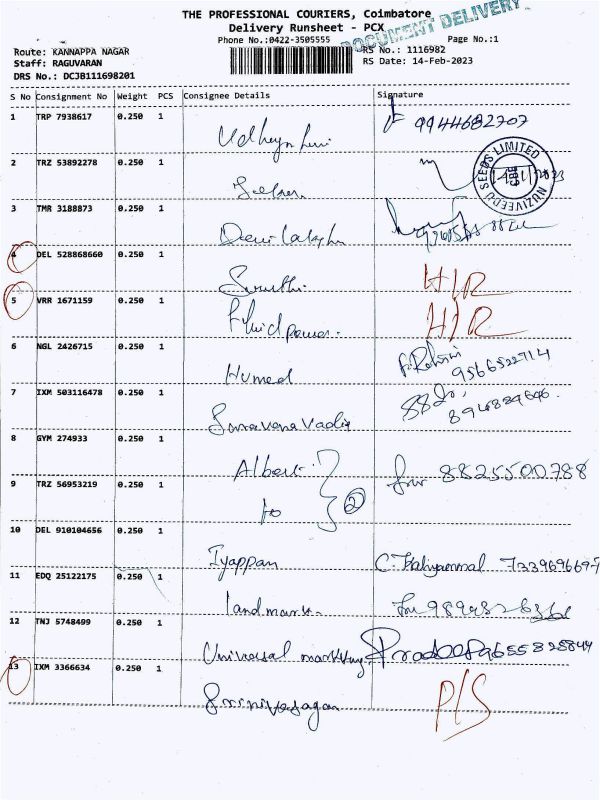 THE PROFESSIONAL COURIERS, Coimbatore
Delivery Runsheet - PCX
DOCUMENT DELIVERY
Phone No.:0422-3505555
Page No.:1
Route: KANNAPPA NAGAR
RS No.: 1116982
Staff: RAGUVARAN
RS Date: 14-Feb-2023
DRS No.: DCJB111698201
S No Consignment No Weight PCS Consignee Details Signature
1 TRP 7938617 0.250 1 9944682707
2 TRZ 53892278 0.250 1
NUZIVEEDU SEEDS LIMITED
3 TMR 3188873 0.250 1
4 DEL 528868660 0.250 1 H/R
5 VRR 1671159 0.250 1 Fluid power. H/R
6 NGL 2426715 0.250 1 Humed 9566522714
7 IXM 503116478 0.250 1 Saravana Vadia
8 GYM 274933 0.250 1 Albert
9 TRZ 56953219 0.250 1 to 2 8825500788
10 DEL 910104656 0.250 1 Iyappan
11 EDQ 25122175 0.250 1 Landmark
12 TNJ 5748499 0.250 1 Universal marketing
13 IXM 3366634 0.250 1 Srinivasagan P/S